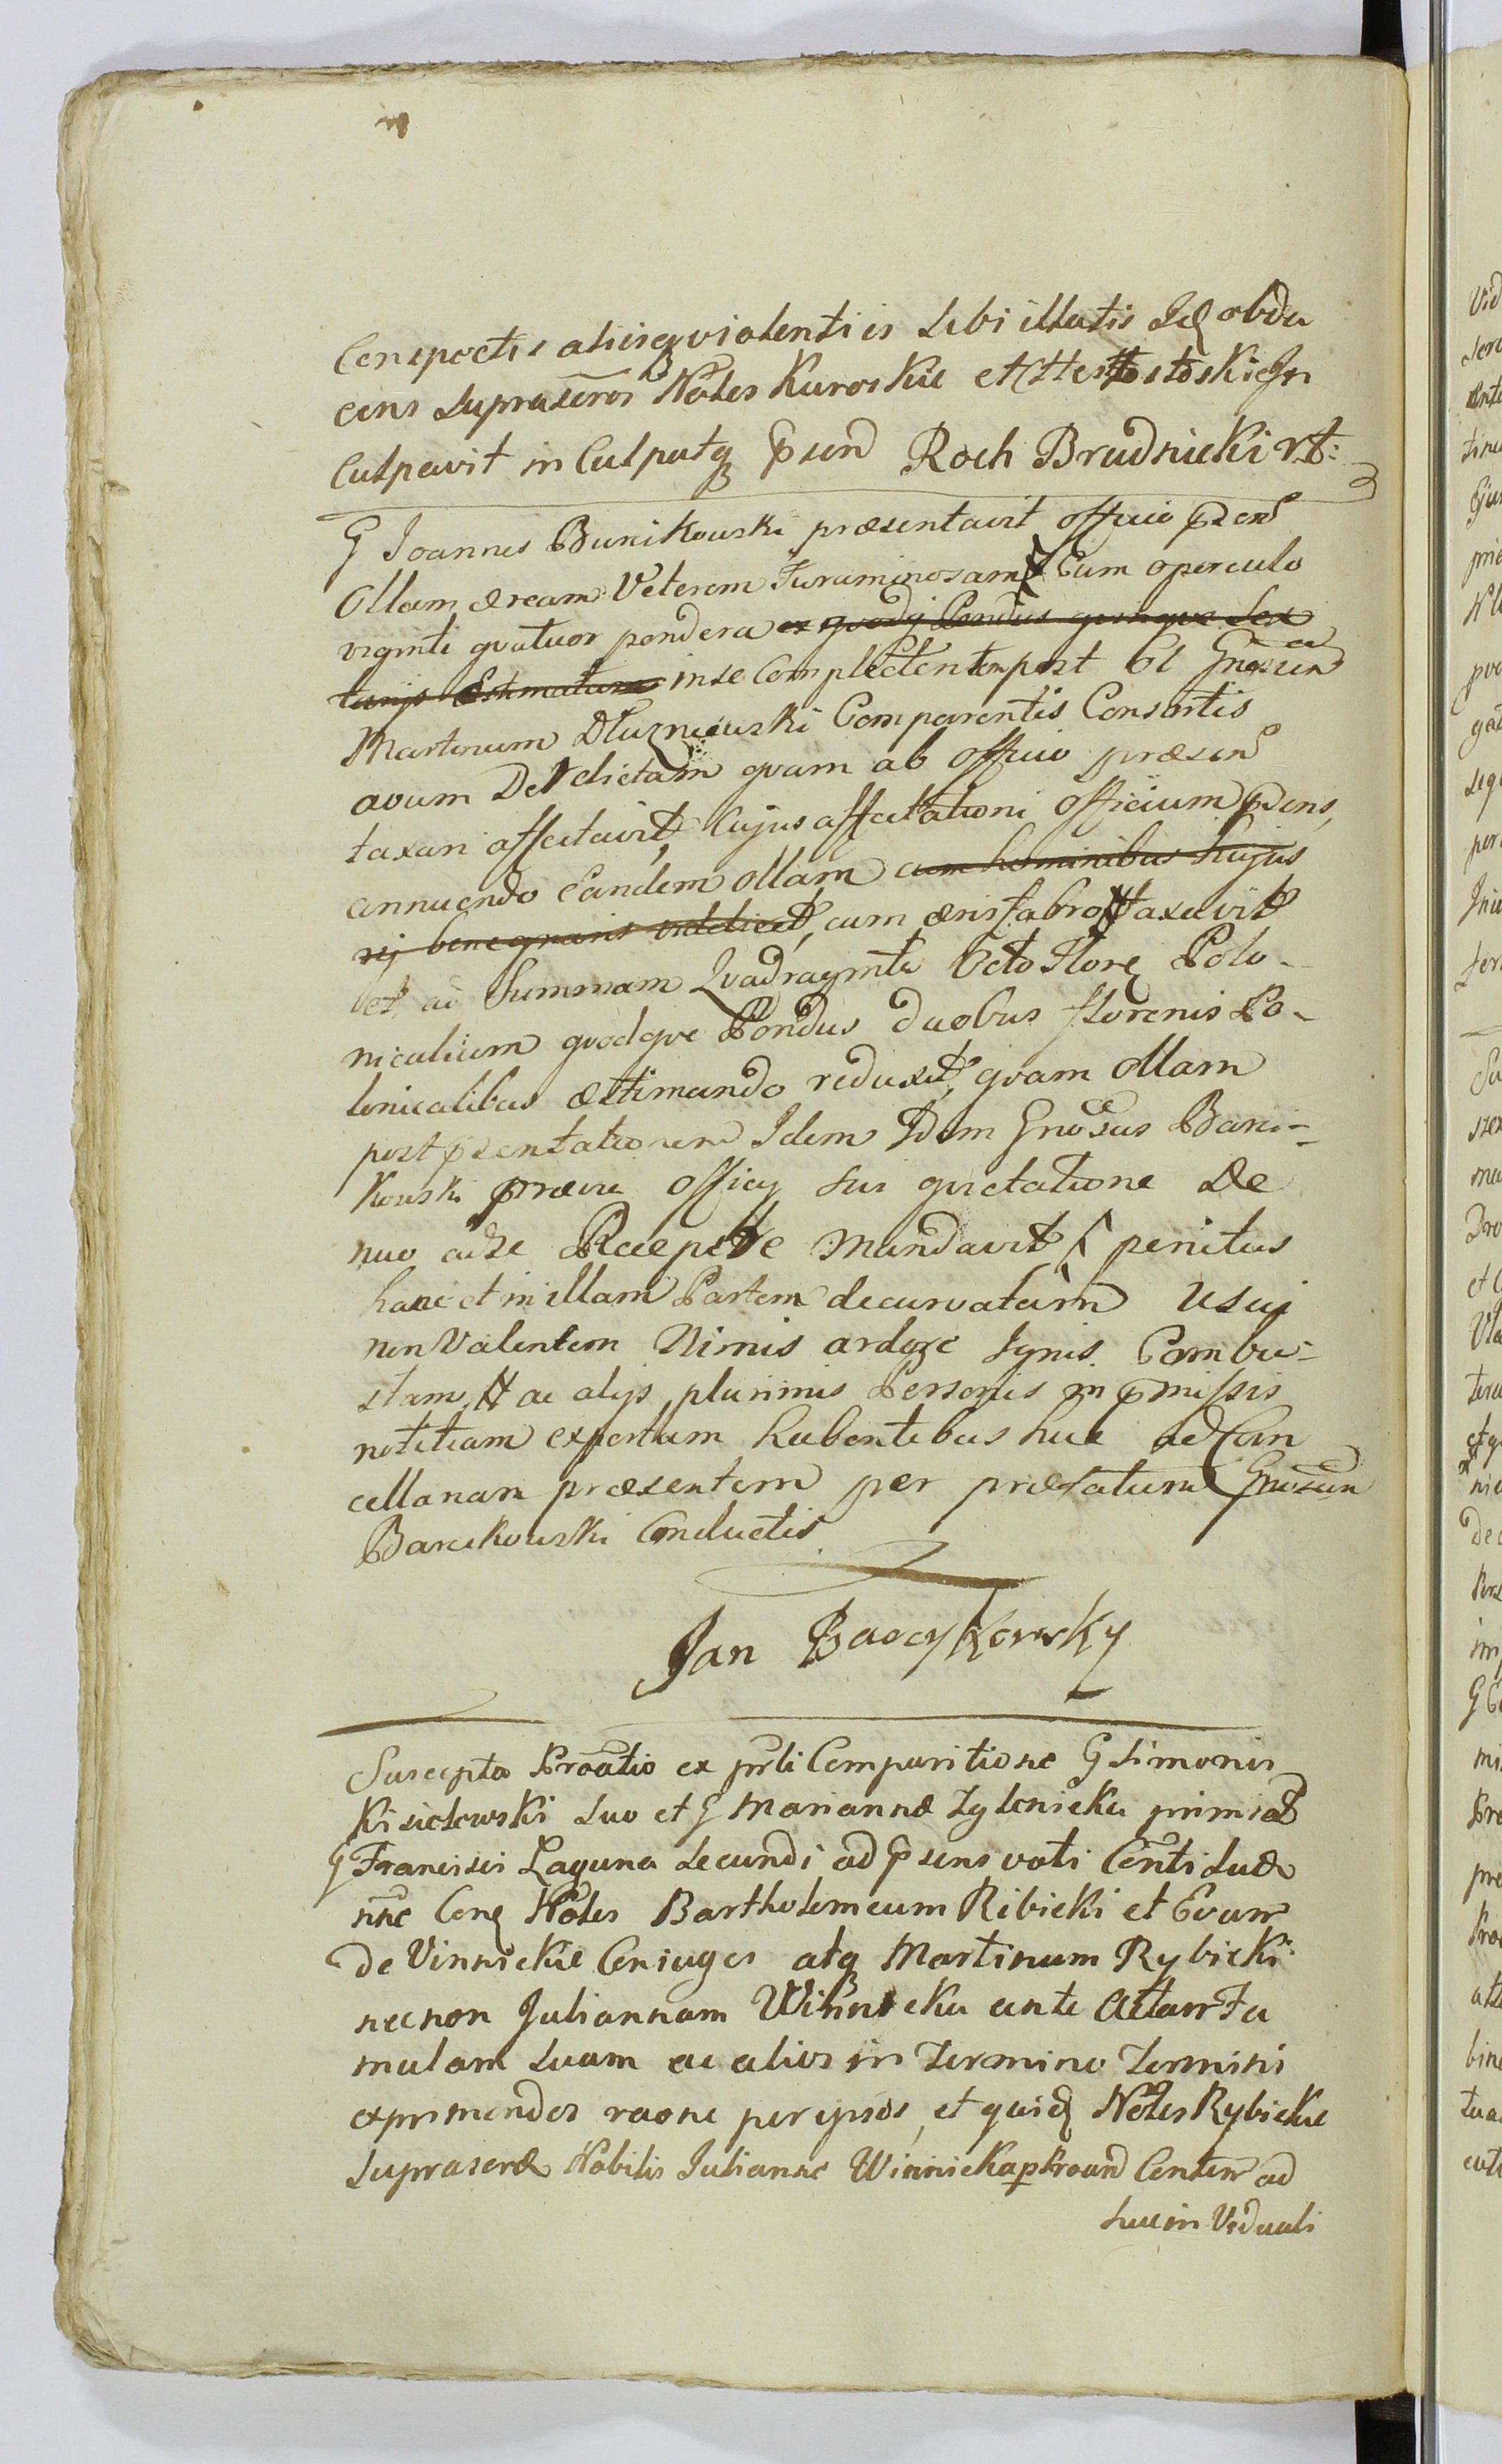 Conspectis aliisq violentiis sibi illatis Idq obdu
cens supraseros Nobles Kuroskie et Hestostoski In
culpavit in Culpatq pren Roch Brudnicki rt:
G Joannes Barcikowski præsentavit officio pren
Ollam æream Veterem Furaminosam Cum operculo
viginti quatuor pondera ex quodq Pondus quinque Sex
tanys Estimatum inse Complectentem post ol Gnosum
Martinum Dluzniewski Comparentis Consortis
avum Derelictam quam ab officio præsen
taxari affectavit, Cujus affectationi officium prens,
annuendo Eandem ollam cum hominibus hujus
rei bene gnaris videlicet, cum æris fabro taxavit
et ad Summam Quadraginta Octo Flore Polo-
nicalium quodque Pondus duobus florenis Po-
lonicalibus æstimando reduxit, quam ollam
post prentationem Idem Idem Gnosus Barci-
kowski prævia officy sui quietatione De
nuo ad se Recepisse Mandavit penitus
hanc et in illam Partem decurvatam Usui
non Valentem Nimis ardore Ignis Combu-
stam, ac alys plurimis Personis in pmissis
notitiam expertam habentibus huc ad Can
cellariam præsentem per præfatum Gnosum
Barcikowski Conductis
Jan Barcykowsky
Suscepta Proatio ex prli Comparitione G Simonis
Kisielewski suo et G Mariannæ Zylonicka primi
G Francisci Laguna secundi ad prsens voti Conti suæ
nne Conq Nobles Bartholomeum Ribicki et Evam
de Vinnickie Coniuges atq Martinum Rybicki
necnon Juliannam Winnicka ante Actam Fa
mulam suam ac alios in Termino Termini
exprimendos raone per ipsos, et quidq Nobles Rybickie
suprasero Nobilis Julianne Winnicka p Proand Centem ad
huc in Viduali